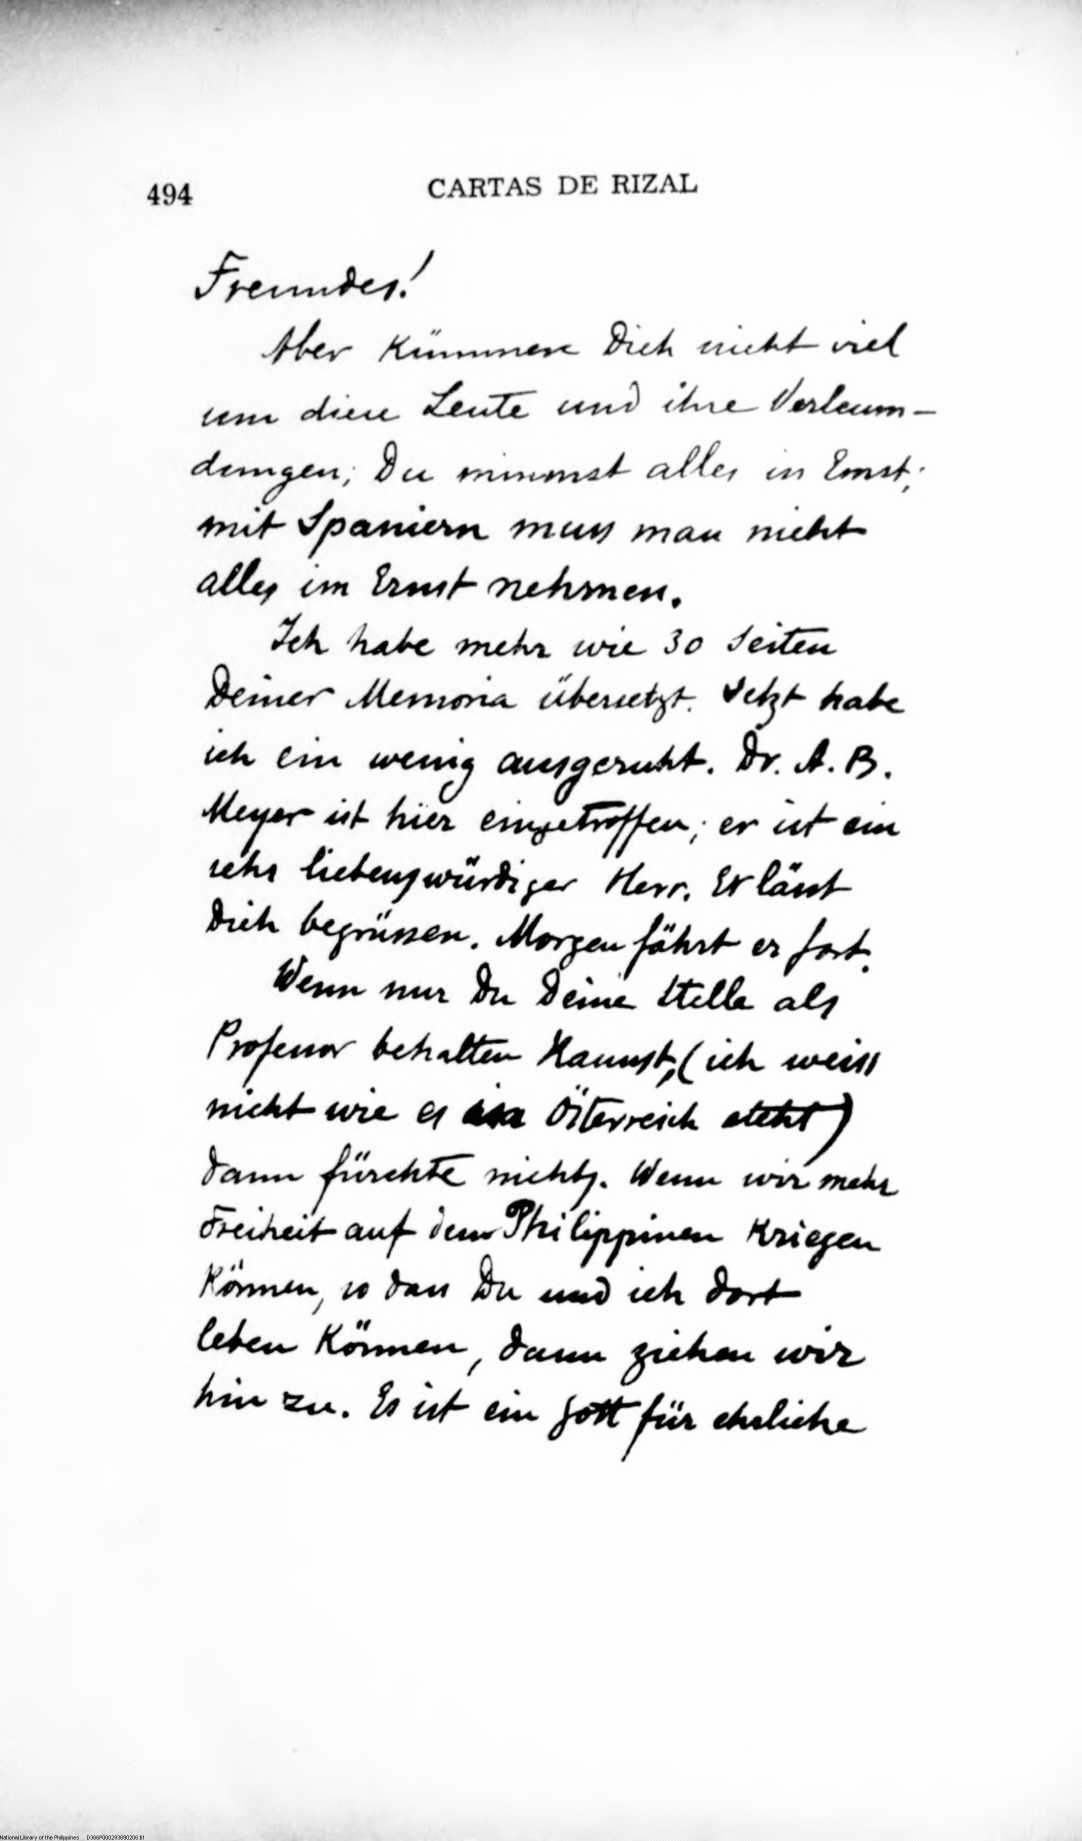 494 CARTAS DE RIZAL
Freundes!
Aber kümmere Dich nicht viel
um diese Leute und ihre Verleum-
dungen; Du nimmst alles in Ernst;
mit Spaniern muss man nicht
alles im Ernst nehmen.
Ich habe mehr wie 30 Seiten
Deiner Memoria übersetzt. Jetzt habe
ich ein wenig ausgeruht. Dr. A. B.
Meyer ist hier eingetroffen; er ist ein
sehr liebenswürdiger Herr. Er lässt
Dich begrüssen. Morgen fährt er fort.
Wenn nur Du Deine Stelle als
Professor behalten kannst, (ich weiss
nicht wie es in Österreich steht)
dann fürchte nichts. Wenn wir mehr
Freiheit auf den Philippinen kriegen
können, so dass Du und ich dort
leben können, dann ziehen wir
hin zu. Es ist ein Gott für ehrliche
National Library of the Philippines